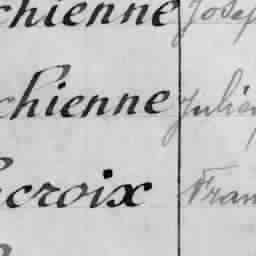 chienne Josep
chienne Julien
croix Fran